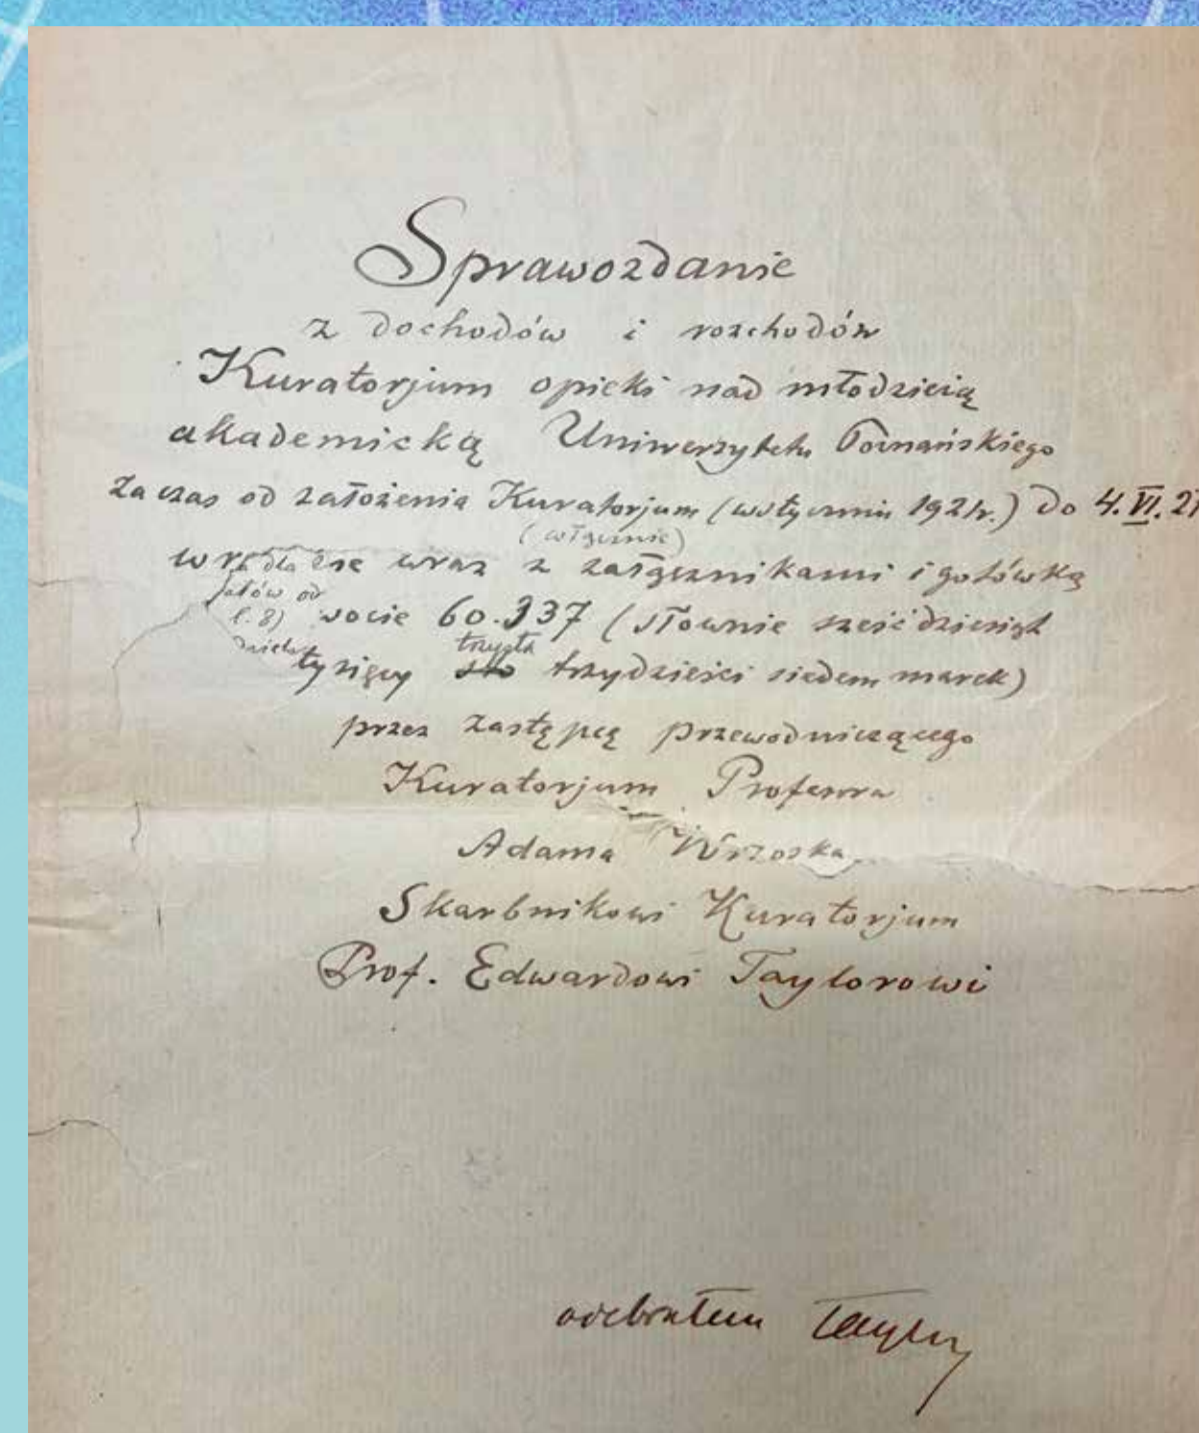 Sprawozdanie
z dochodów i rozchodów
Kuratorjum opieki nad młodzieżą
akademicką Uniwersytetu Poznańskiego
za czas od założenia Kuratorjum (w styczniu 1921r.) do 4.VI.21
(włącznie)
wraz z załącznikami i gotówką
od
l. 8) wocie 60.337 (słownie sześćdziesiąt
tysięcy trzysta sto trzydzieści siedem marek)
przez zastępcę przewodniczącego
Kuratorjum Profesora
Adama Wrzoska
Skarbnikowi Kuratorjum
Prof. Edwardowi Taylorowi
odebrałem Taylor